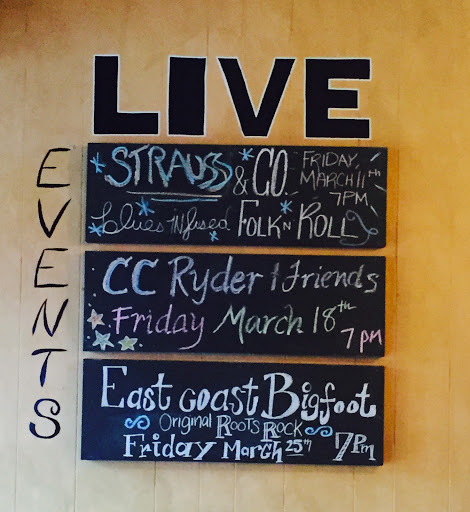 LIVE
EVENTS
STRAUSS & CO. FRIDAY, MARCH 11th 7PM
blues infused FOLK N ROLL
CC Ryder & Friends
Friday March 18th 7pm
East coast Bigfoot
Original Roots Rock
Friday March 25th 7pm